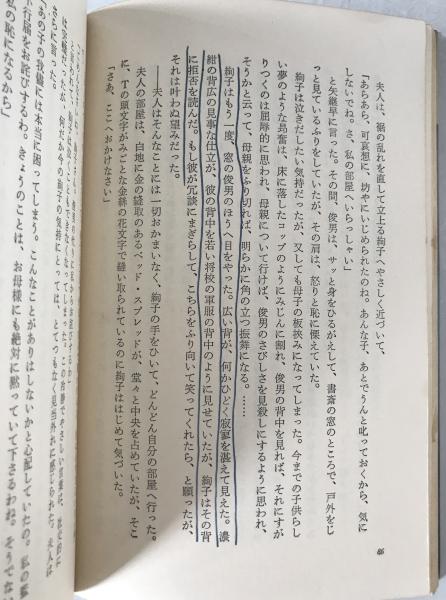 夫人は、裾の乱れを直して立上る絢子へやさしく近づいて、
「あらあら、可哀想に、坊やにいじめられたのね。あんな子、あとでうんと叱っておくから、気に
しないでね。さ、私の部屋へいらっしゃい」
と矢継早に言った。その間、俊男は、サッと身をひるがえして、書斎の窓のところで、戸外をじ
っと見ているふりをしていたが、その肩は、怒りと恥に慄えていた。
絢子は泣きだしたい気持だったが、又しても母子の板挟みになってしまった。今までの子供らし
い夢のような昂奮は、床に落したコップのようにみじんに割れ、俊男の背中を見れば、それにすが
りつくのは屈辱的に思われ、母親について行けば、俊男のさびしさを見殺しにするように思われ、
そうかと云って、母親をふり切れば、明らかに角の立つ振舞になる。……
絢子はもう一度、窓の俊男のほうへ目をやった。広い背が、何かひどく寂寥を湛えて見えた。濃
紺の背広の見事な仕立が、彼の背中を若い将校の軍服の背中のように見せていたが、絢子はその背
に拒否を読んだ。もし彼が冗談にまぎらして、こちらをふり向いて笑ってくれたら、と願ったが、
それは叶わぬ望みだった。
――夫人はそんなことには一切おかまいなく、絢子の手をひいて、どんどん自分の部屋へ行った。
夫人の部屋は、白地に金の縫取のあるベッド・スプレッドが、堂々と中央を占めていたが、そこ
に、Tの頭文字がみごとな金絲の花文字で縫い取られているのに絢子ははじめて気づいた。
「さあ、ここへおかけなさい」
46
さらに言った。
「あの子の我儘には本当に困ってしまう。こんなことがありはしないかと心配していたの。私の
不行届をお詫びするわ。きょうのことは、お母様にも絶対に黙っていて下さるわね。そうでない
私の恥になるから」